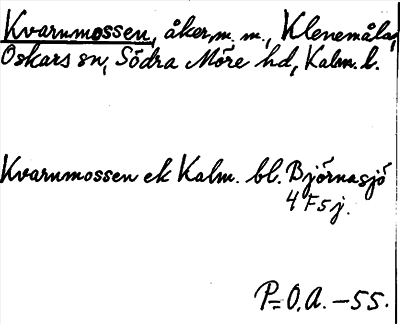 Kvarnmossen, åker, m. m., Klenemåla,
Oskars sn, Södra Möre hd, Kalm. l.
Kvarnmossen ek Kalm. bl. Björnasjö
4 F 5 j.
P=O.A. -55.